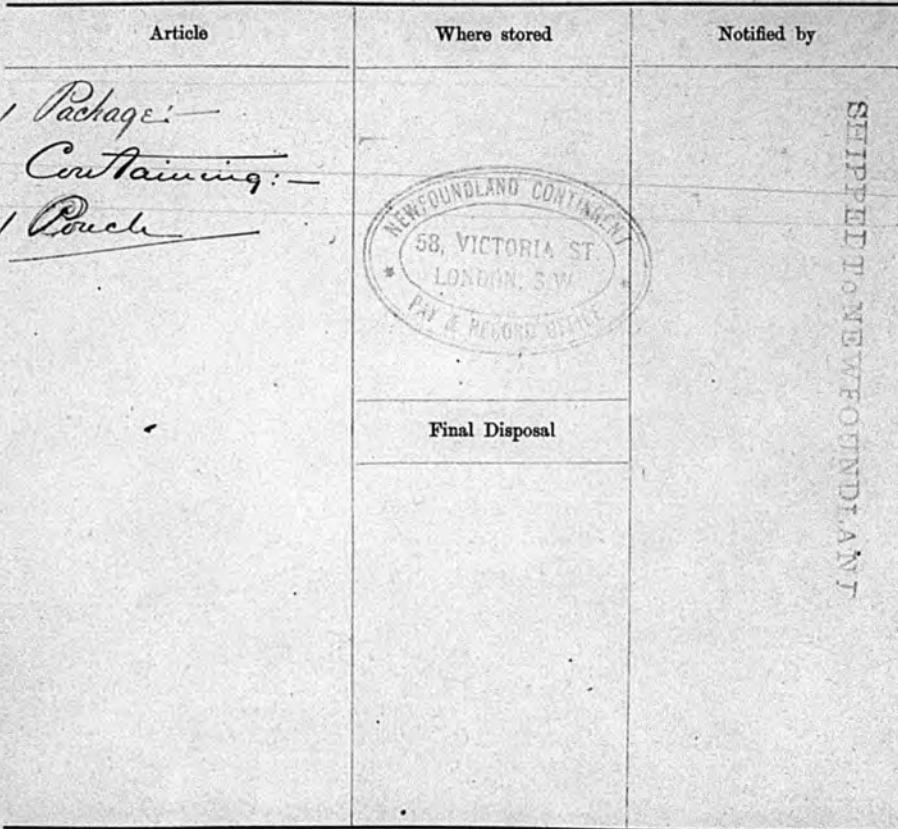 Article
Where stored
Notified by
1 Package:—
Containing:—
1 Pouch
NEWFOUNDLAND CONTINGENT
58, VICTORIA ST.
LONDON, S.W.
* PAY & RECORD OFFICE *
Final Disposal
SHIPPED To NEWFOUNDLAND